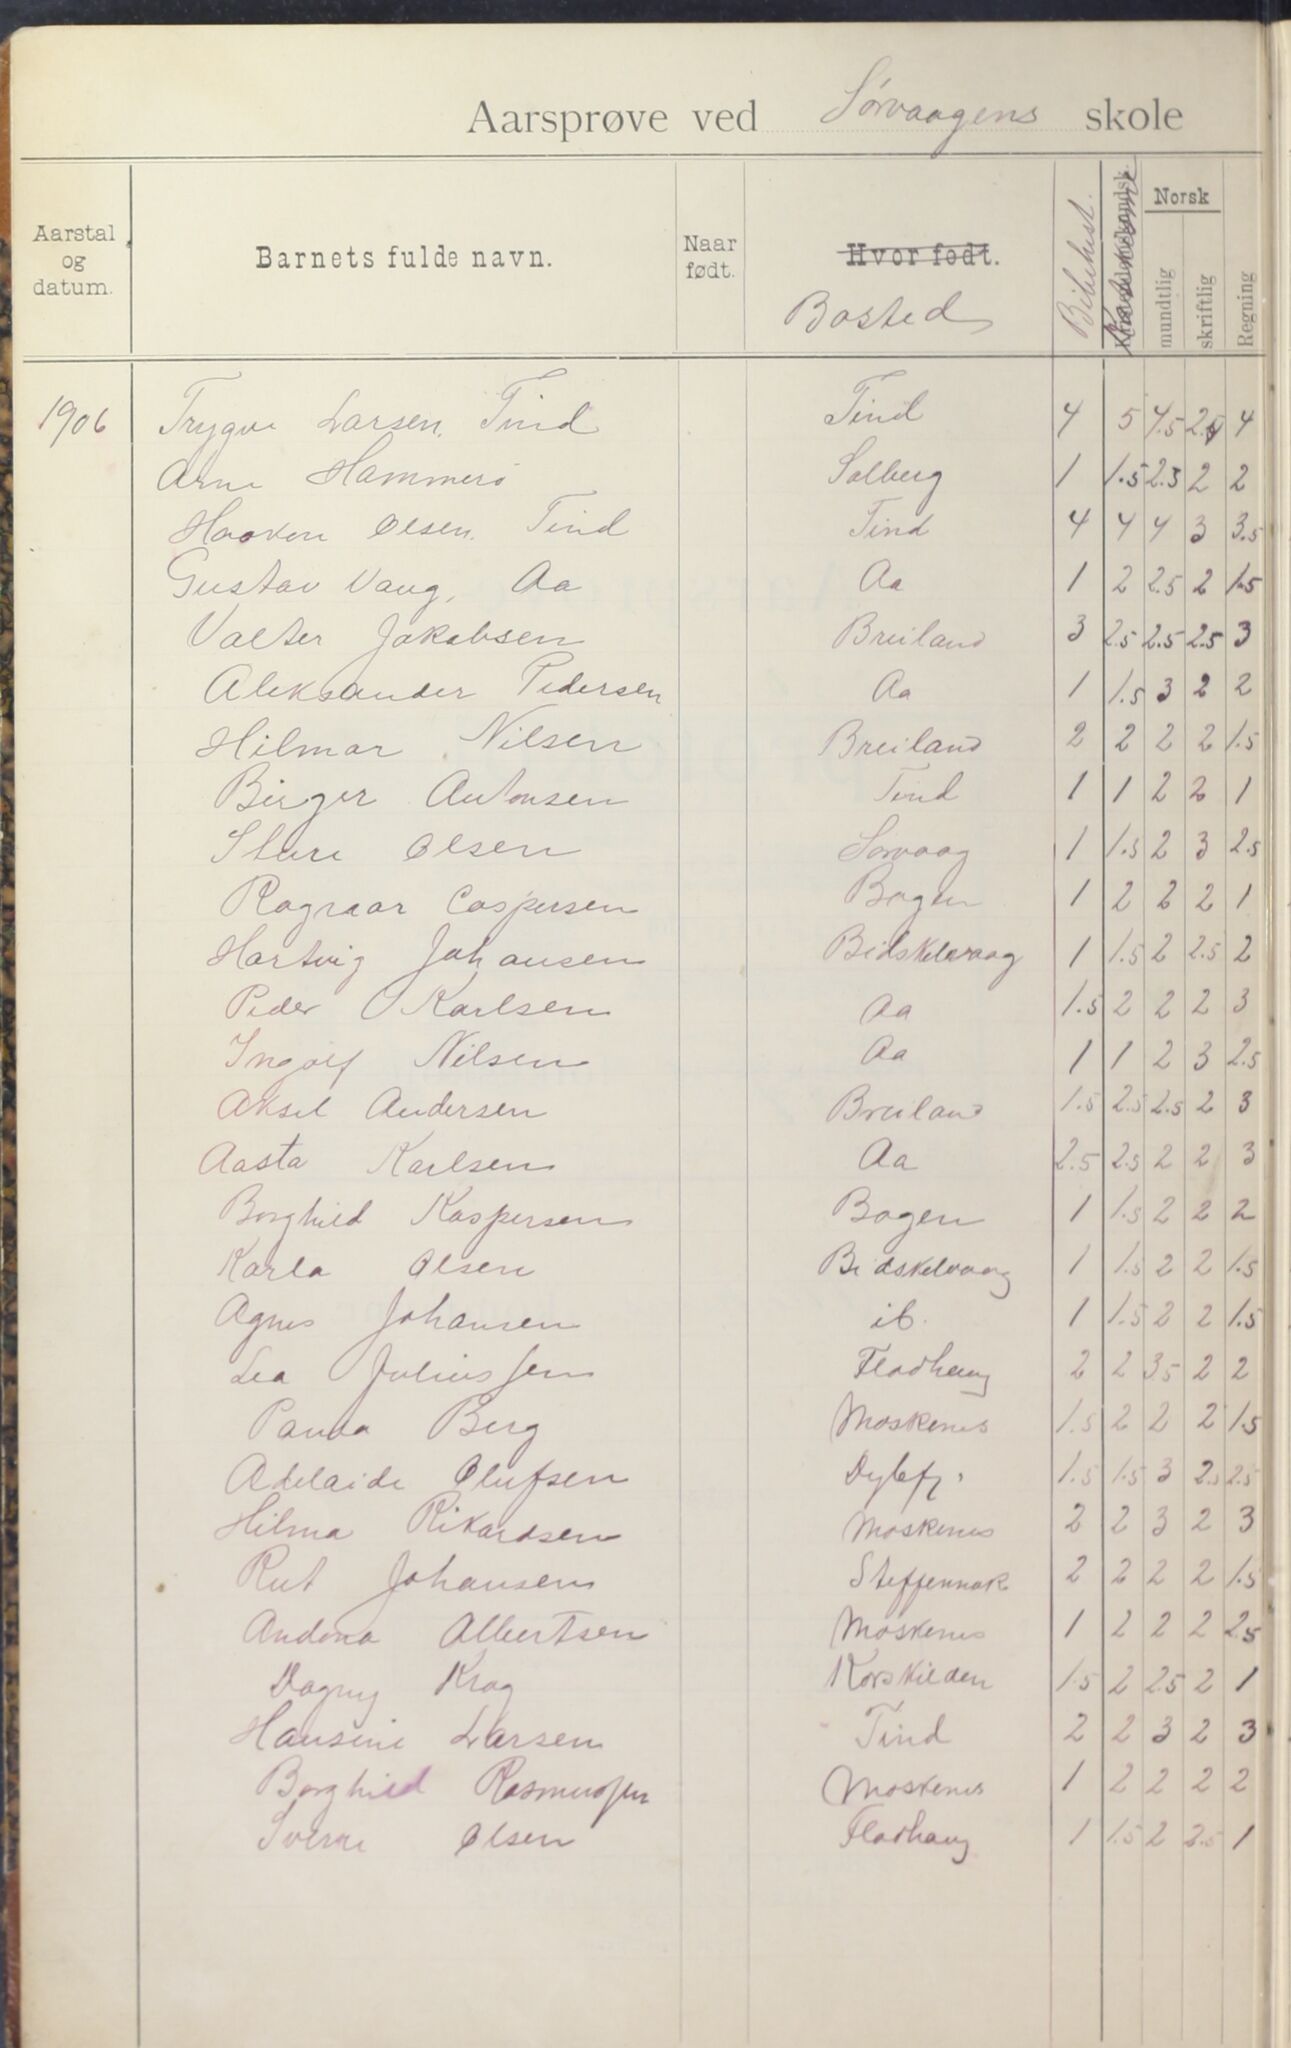 Aarsprøve ved Sørvaagens skole
Aarstal og datum. Barnets fulde navn. Naar født. Hvor født. Bosted Bibelhist. Norsk mundtlig skriftlig Regning
1906 Trygve Larsen, Tind Tind 4 5 4.5 2.5 4
Arne Hammerø Solberg 1 1.5 2.5 2 2
Haakon Olsen. Tind Tind 4 4 4 3 3.5
Gustav Vang, Aa Aa 1 2 2.5 2 1.5
Valter Jakobsen Breiland 3 2.5 2.5 2.5 3
Aleksander Pedersen Aa 1 1.5 3 2 2
Hilmar Nilsen Breiland 2 2 2 2 1.5
Birger Antonsen Tind 1 1 2 2 1
Sture Olsen Sørvaag 1 1.5 2 3 2.5
Ragnar Caspersen Bogen 1 2 2 2 1
Hartvig Johansen Bidskelvaag 1 1.5 2 2.5 2
Peder Karlsen Aa 1.5 2 2 2 3
Ingolf Nilsen Aa 1 1 2 3 2.5
Aksel Andersen Breiland 1.5 2.5 2.5 2 3
Aasta Karlsen Aa 2.5 2.5 2 2 3
Borghild Kaspersen Bogen 1 1.5 2 2 2
Karla Olsen Bidskelvaag 1 1.5 2 2 1.5
Agnes Johansen ib. 1 1.5 2 2 1.5
Lea Juliussen Fladhaug 2 2 3.5 2 2
Paula Berg Moskenes 1.5 2 2 2 1.5
Adelaide Olufsen 1.5 1.5 3 2.5 2.5
Hilma Rikardsen Moskenes 2 2 3 2 3
Rut Johansen Steffennak 2 2 2 2 1.5
Andona Albertsen Moskenes 1 2 2 2 2.5
Dagny Krog Korskilden 1.5 2 2.5 2 1
Hansine Larsen Tind 2 2 3 2 3
Borghild Rasmussen Moskenes 1 2 2 2 2
Sverre Olsen Fladhaug 1 1.5 2 2.5 1